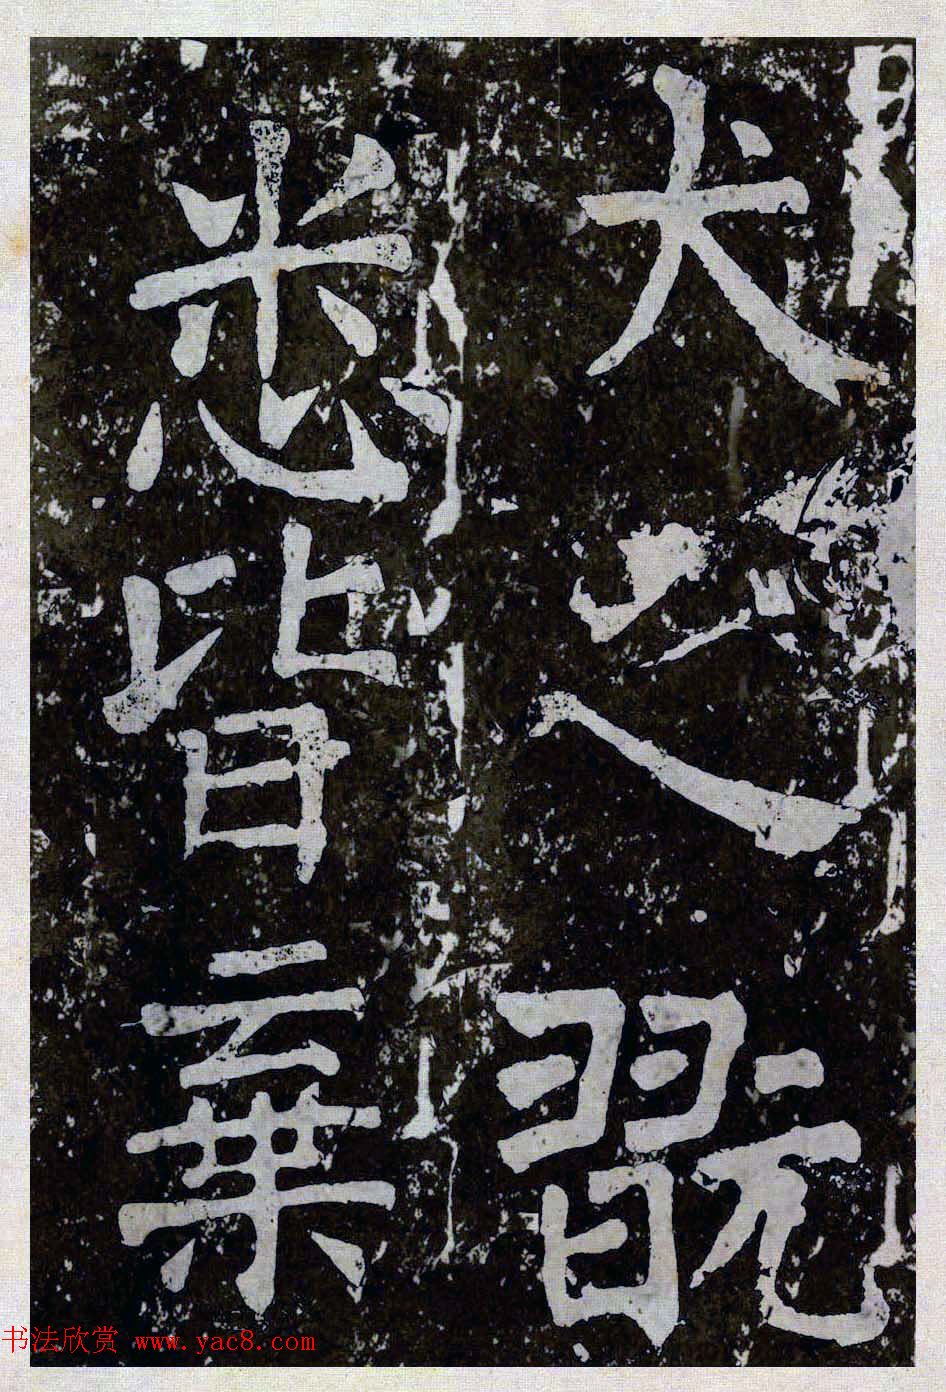 犬之翫
悉皆棄
书法欣赏 www.yac8.com